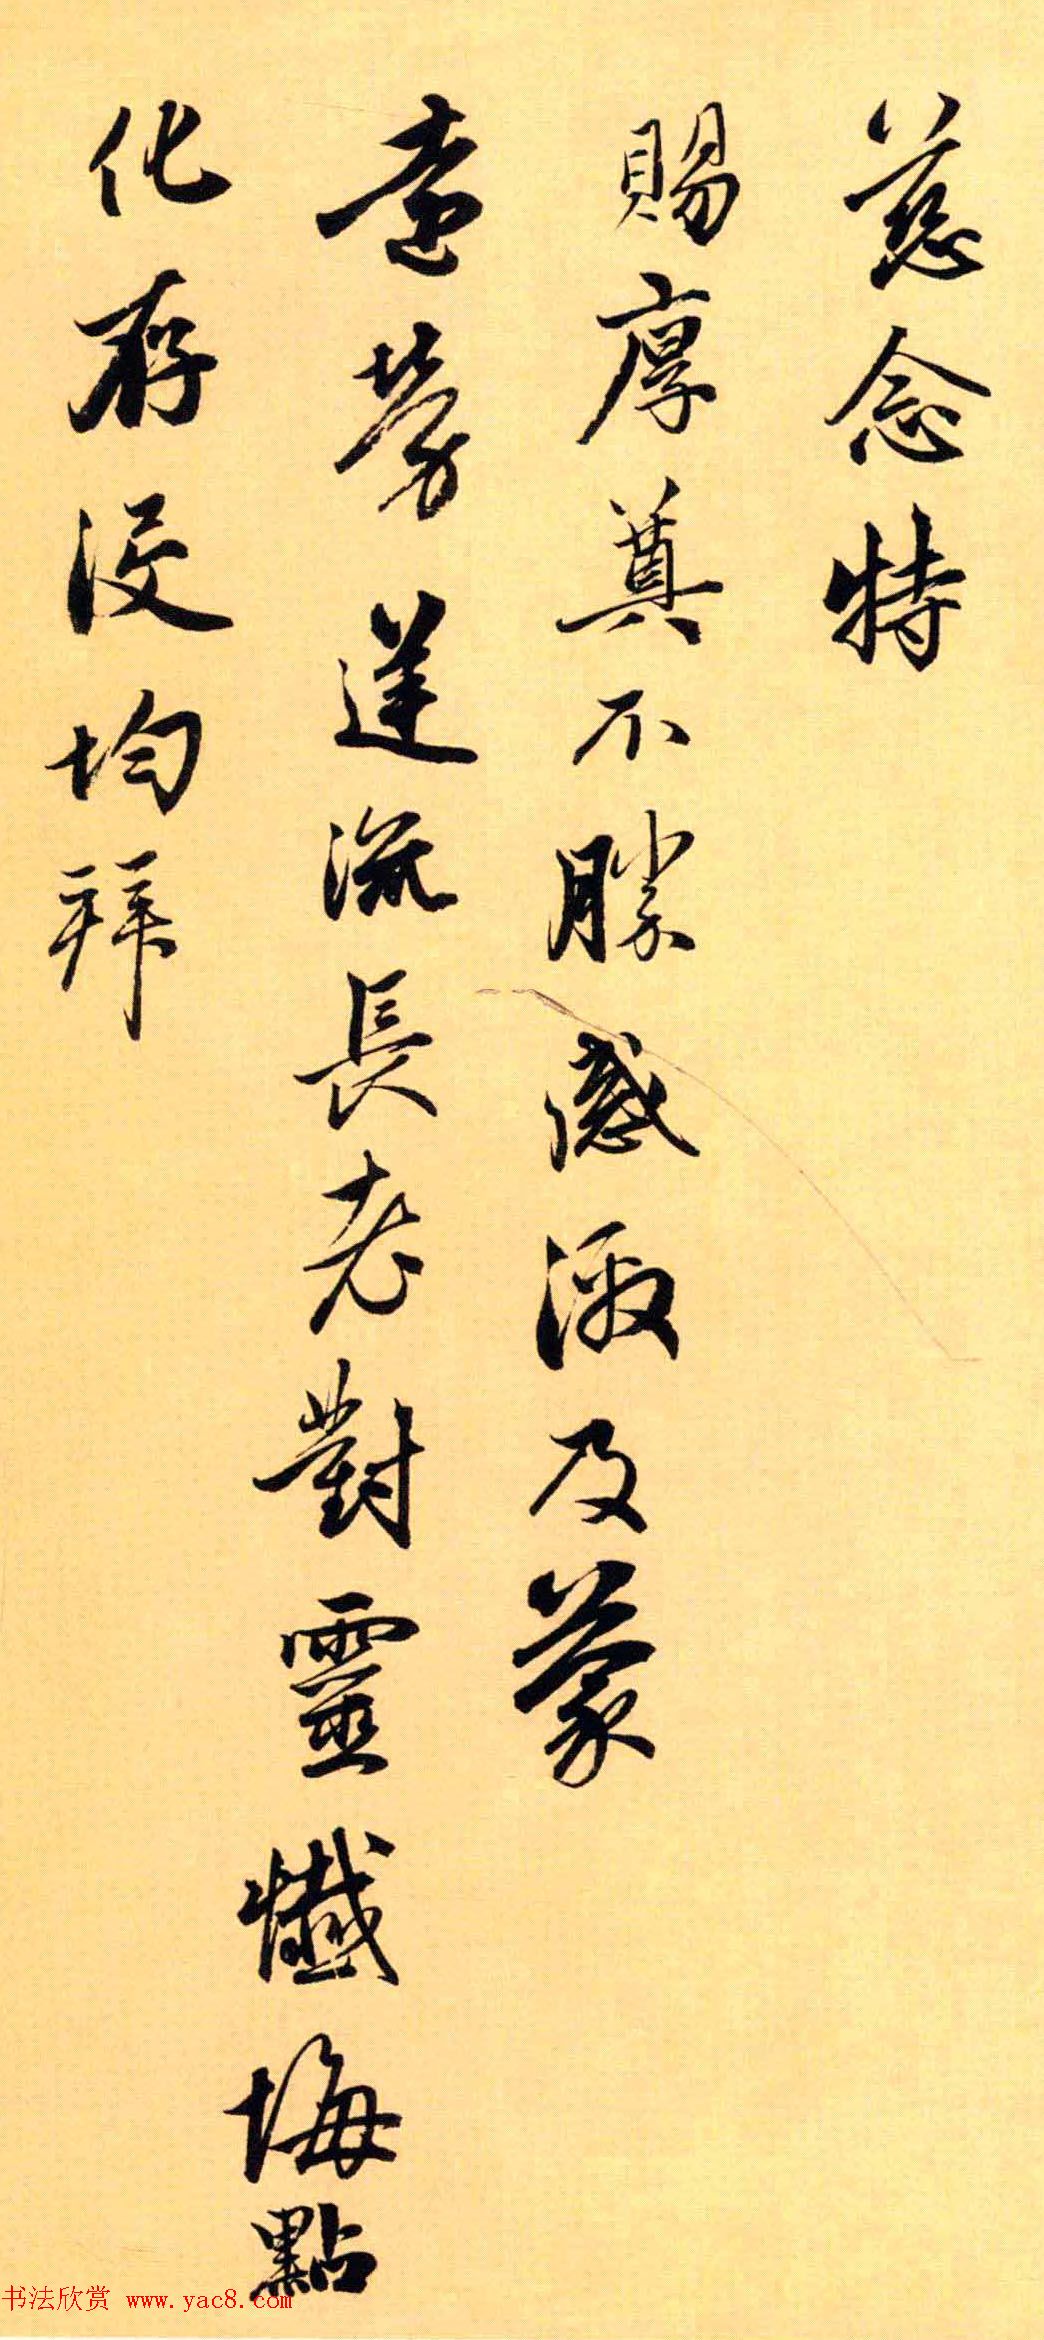 慈念特
賜厚奠不勝感激及蒙
遠勞蓬流長老對靈懺悔點
化存没均拜
书法欣赏 www.yac8.com